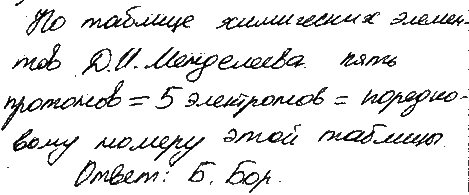 По таблице химических элемен-
тов Д.И. Менделеева пять
протонов = 5 электронов = порядко-
вому номеру этой таблицы
Ответ: Б. Бор.